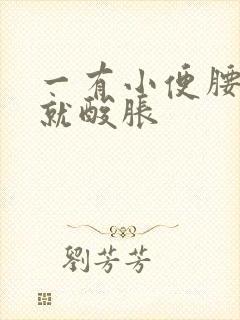 一有小便腰
就酸脹
劉芳芳